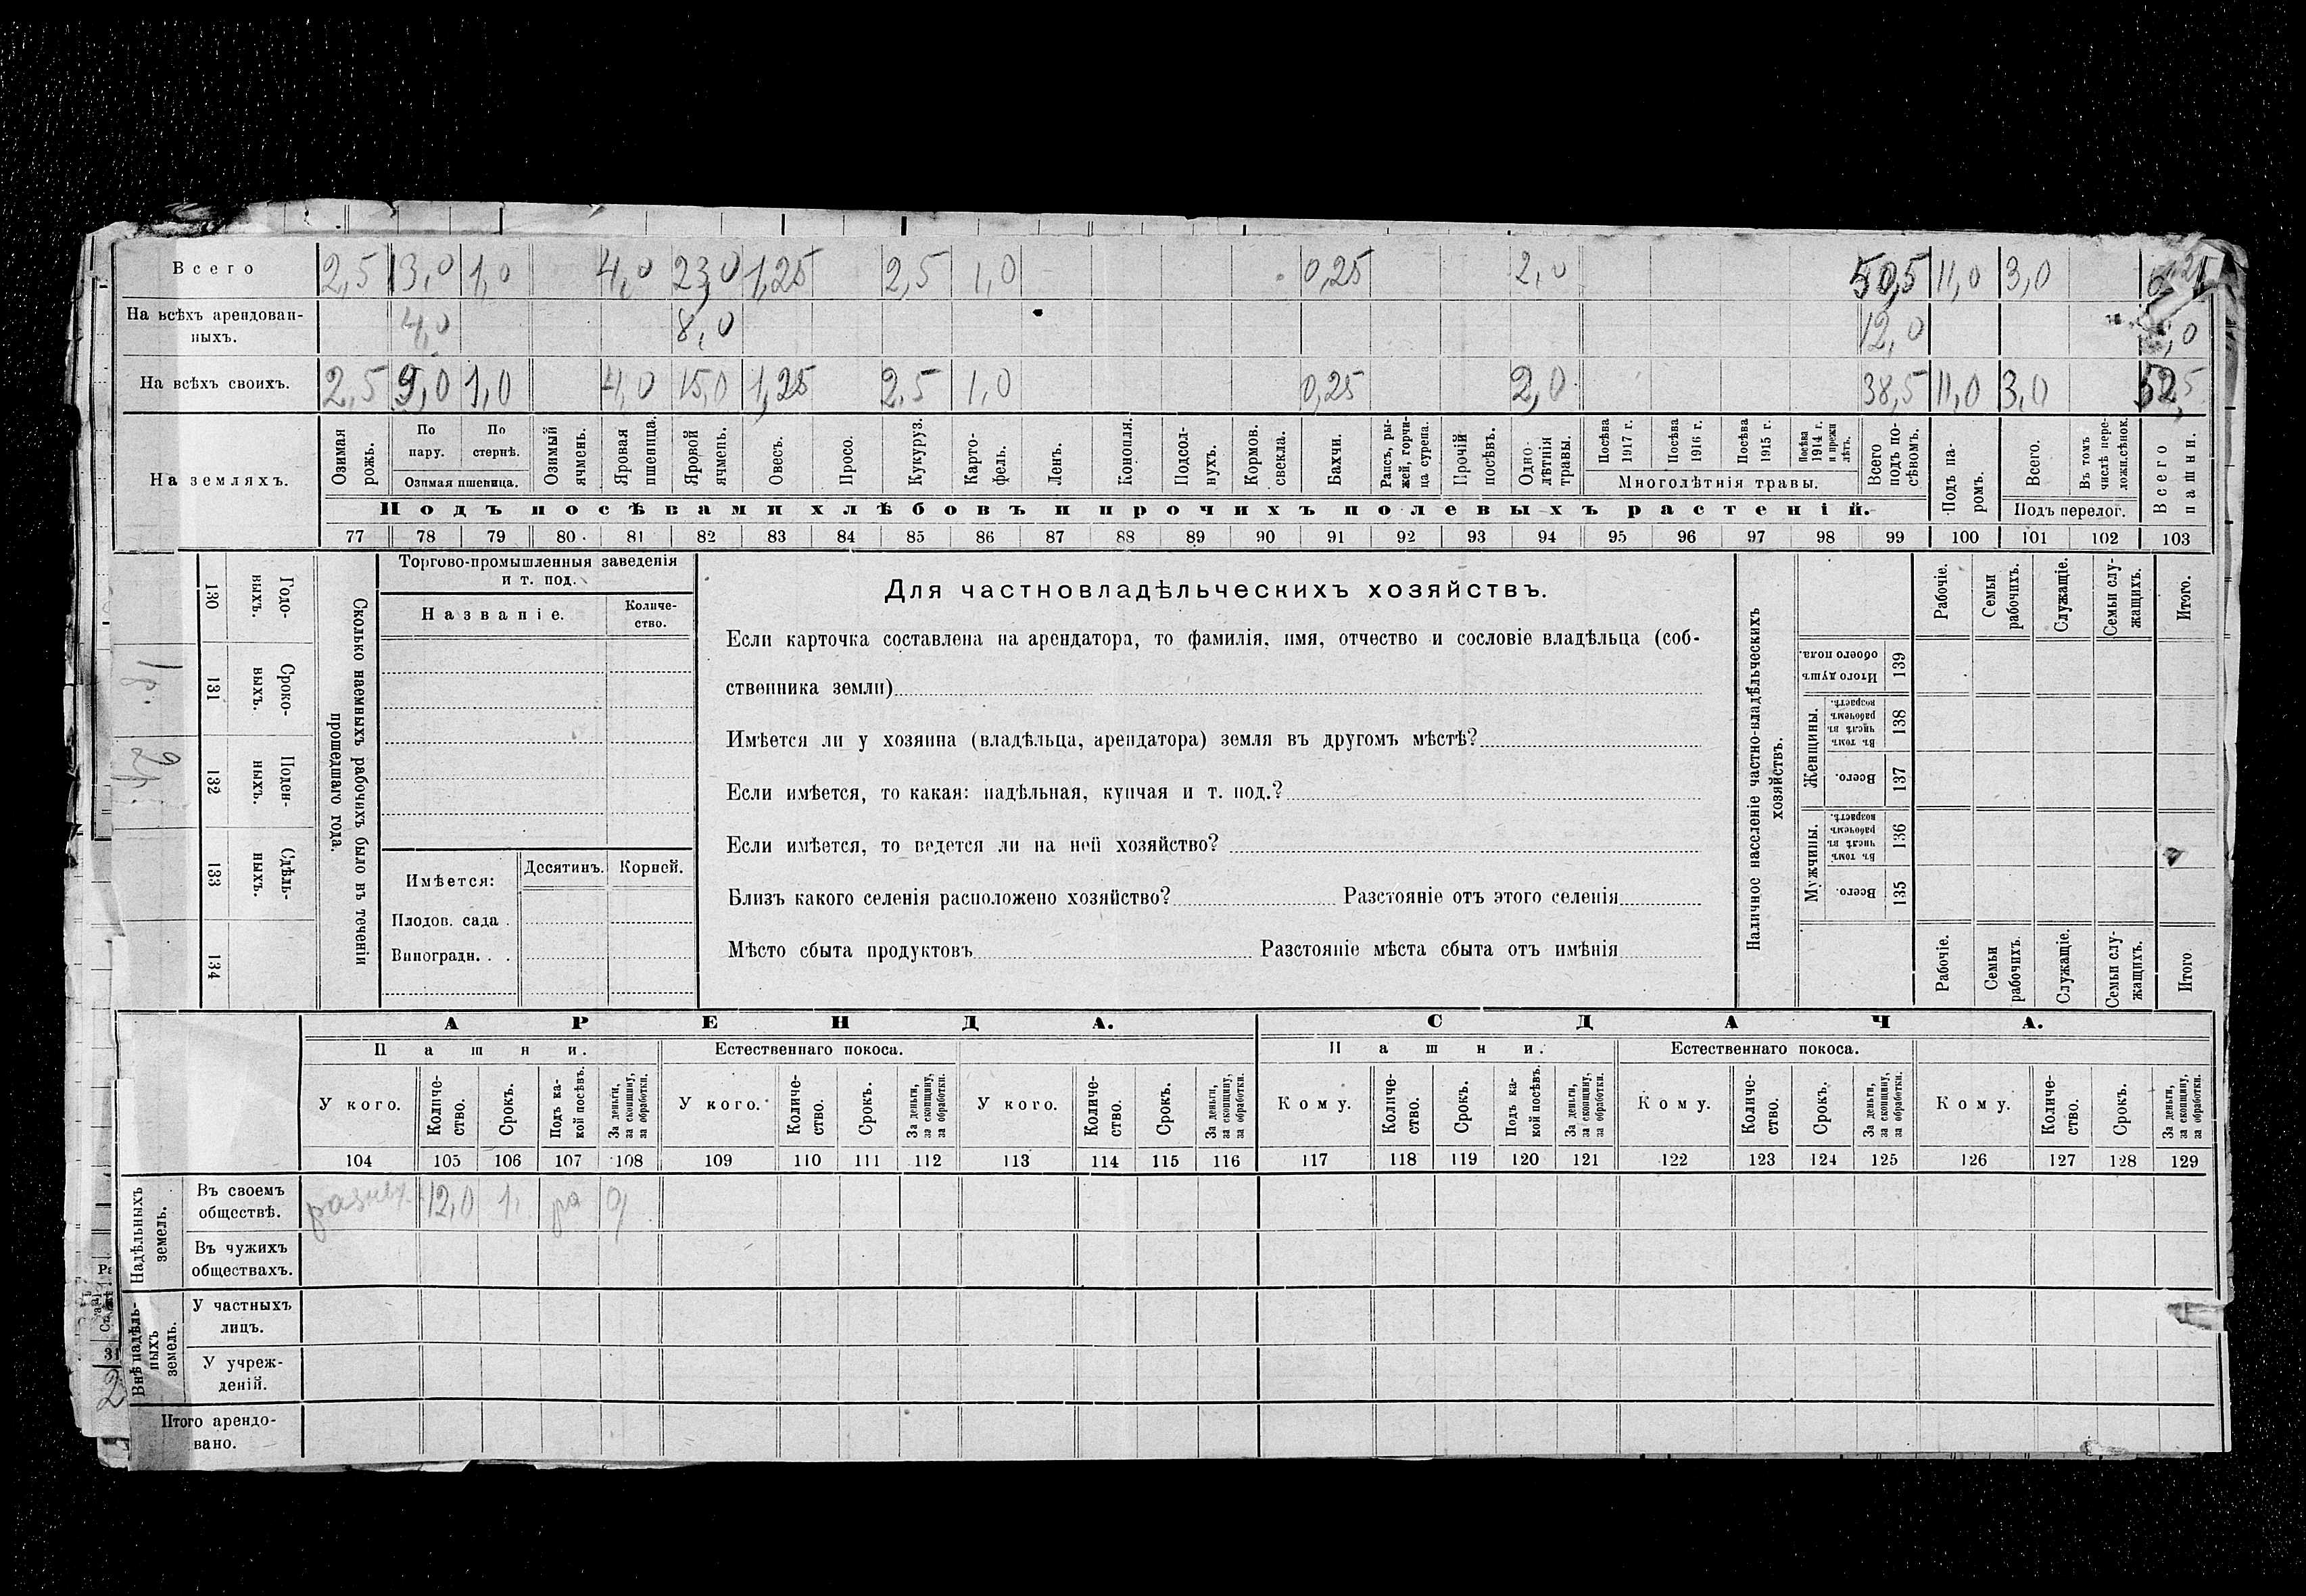 Всего 2,5 13,0 1,0 4,0 23,0 1,25 2,5 1,0 0,25 2,0 50,5 11,0 3,0
На всѣхъ арендован-
ныхъ. 4,0 8,0 12,0
На всѣхъ своихъ. 2,5 9,0 1,0 4,0 15,0 1,25 2,5 1,0 0,25 2,0 38,5 11,0 3,0 52,5
На земляхъ.
Озимая рожь.
По пару.
По стернѣ.
Озимая пшеница.
Озимый ячмень.
Яровая пшеница.
Яровой ячмень.
Овесъ.
Просо.
Кукуруз.
Карто-
фель.
Ленъ.
Конопля.
Подсол-
нухъ.
Кормов. свекла.
Бахчи.
Рапсъ, ры-
жей, горчи-
ца сурепа.
Прочій посѣвъ.
Одно-
лѣтнія травы.
Посѣва 1917 г.
Посѣва 1916 г.
Посѣва 1915 г.
Посѣва 1914 г. и прежн лѣтъ.
Многолѣтнія травы.
Всего подъ по-
сѣвомъ.
Подъ па-
ромъ.
Всего.
Въ томъ числѣ пере-
ложн.сѣнок.
Подъ перелог.
Всего пашни.
Подъ посѣвами хлѣбовъ и прочихъ полевыхъ растеній.
77 78 79 80 81 82 83 84 85 86 87 88 89 90 91 92 93 94 95 96 97 98 99 100 101 102 103
130 Годо-
ныхъ.
131 Сроко-
ныхъ.
132 Поден-
ныхъ.
133 Сдѣль-
ныхъ.
134
1р.
2р.
Сколько наемныхъ рабочихъ было въ теченіи
прошедшаго года.
Торгово-промышленныя заведенія
и т. под.
Названіе.
Количе-
ство.
Имѣется:
Десятинъ. Корней.
Плодов. сада .
Виноградн. . .
Для частновладѣльческихъ хозяйствъ.
Если карточка составлена на арендатора, то фамилія, имя, отчество и сословіе владѣльца (соб-
ственника земли)
Имѣется ли у хозяина (владѣльца, арендатора) земля въ другомъ мѣстѣ?
Если имѣется, то какая: надѣльная, купчая и т. под.?
Если имѣется, то ведется ли на ней хозяйство?
Близъ какого селенія расположено хозяйство? Разстояніе отъ этого селенія
Мѣсто сбыта продуктовъ Разстояніе мѣста сбыта отъ имѣнія
Наличное населеніе частно-владѣльческихъ
хозяйствъ.
Рабочіе.
Семьи рабочихъ.
Служащіе.
Семьи слу-
жащихъ.
Итого.
Итого душъ обоего пола. 139
Женщины.
Въ томъ числѣ въ рабочемъ возрастѣ. 138
Всего. 137
Мужчины.
Въ томъ числѣ въ рабочемъ возрастѣ. 136
Всего. 135
Рабочіе.
Семьи рабочихъ.
Служащіе.
Семьи слу-
жащихъ.
Итого
АРЕНДА. СДАЧА.
Пашни. Естественнаго покоса. Пашни. Естественнаго покоса.
У кого.
Количе-
ство.
Срокъ.
Подъ ка-
кой посѣвъ.
За деньги,
за скопщину,
за обработки.
У кого.
Количе-
ство.
Срокъ.
За деньги,
за скопщину,
за обработки.
У кого.
Количе-
ство.
Срокъ.
За деньги,
за скопщину,
за обработки.
Кому.
Количе-
ство.
Срокъ.
Подъ ка-
кой посѣвъ.
За деньги,
за скопщину,
за обработки.
Кому.
Количе-
ство.
Срокъ.
За деньги,
за скопщину,
за обработки.
Кому.
Количе-
ство.
Срокъ.
За деньги,
за скопщину,
за обработки.
104 105 106 107 108 109 110 111 112 113 114 115 116 117 118 119 120 121 122 123 124 125 126 127 128 129
Надѣльныхъ
земель.
Въ своемъ
обществѣ. разных 12,0 1,
Въ чужихъ
обществахъ.
Внѣ надѣль-
ныхъ
земель.
У частныхъ
лицъ.
У учреж-
деній.
Итого арендо-
вано.
31
2